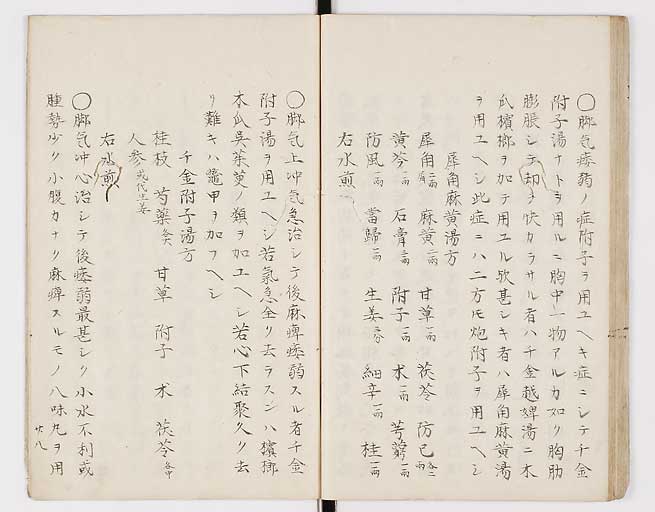 〇脚気痿弱ノ症附子ヲ用ユヘキ症ニシテ千金
附子湯ナトヲ用ルニ胸中一物アルカ如ク胸肋
膨脹シテ却テ快カラサル者ハ千金越婢湯ニ木
瓜檳榔ヲ加テ用ユル歟甚シキ者ハ犀角麻黄湯
ヲ用ユヘシ此症ニハ二方氏炮附子ヲ用ユヘシ
犀角麻黄湯方
犀角 麻黄 甘草 茯苓 防已
黄芩 石膏 附子 朮 芎藭
防風 當歸 生姜 細辛 桂
右水煎
〇脚気上冲気急治シテ後麻痺痿弱スル者千金
附子湯ヲ用ユヘシ若氣急全ク去ラスンハ檳榔
木瓜呉茱萸ノ類ヲ加ユヘシ若心下結聚久ク去
リ難キハ鼈甲ヲ加フヘシ
千金附子湯方
桂枝 芍藥 甘草 附子 朮 茯苓
人参 或代生姜
右水煎
〇脚気冲心治シテ後痿弱最甚シク小水不利或
腫勢少ク小腹力ナク麻痺スルモノ八味丸ヲ用
廿八